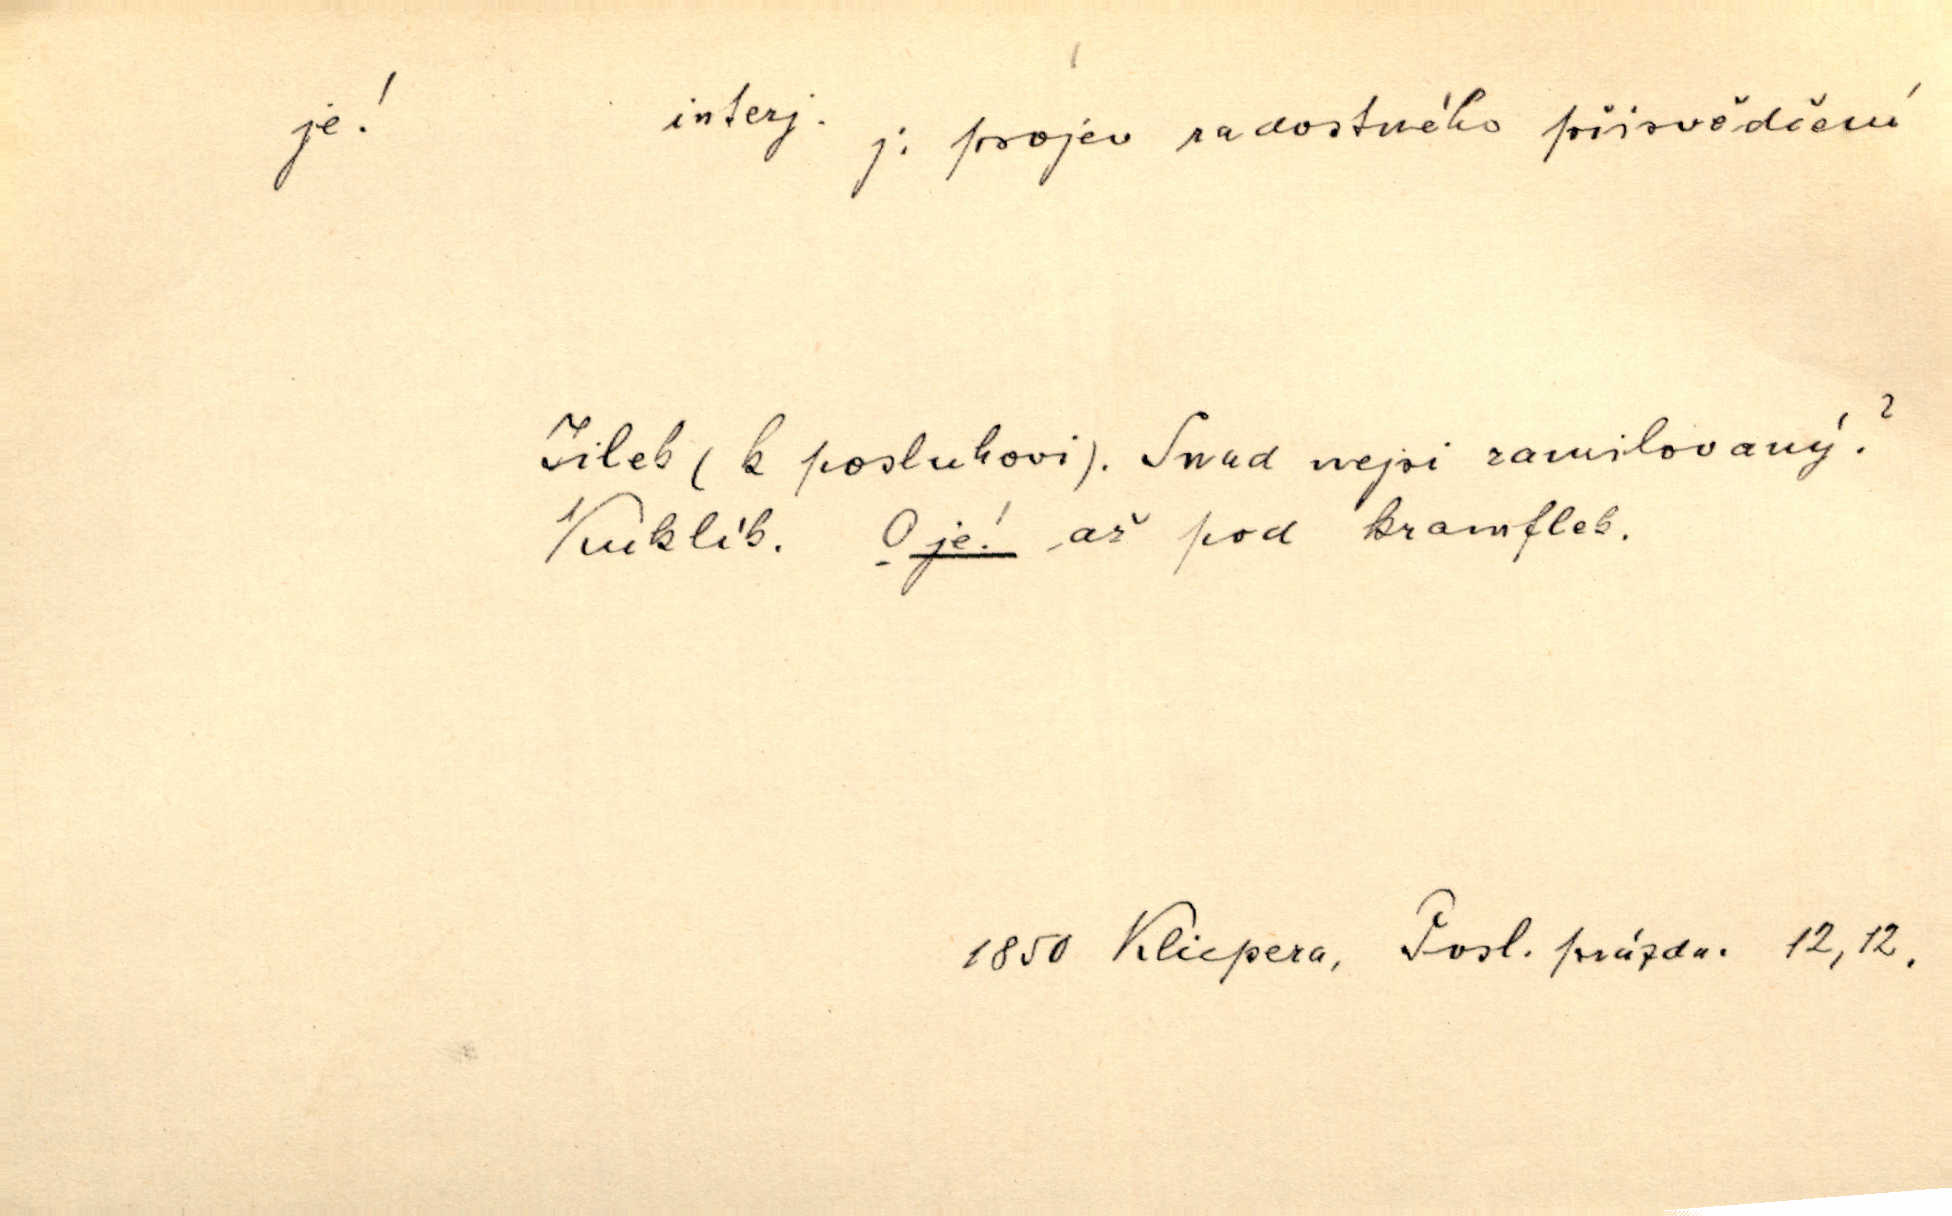 je! interj. j: projev radostného přisvědčení
Jílek (k posluhovi). Snad nejsi zamilovaný?
Kuklík. O je! až pod kramflek.
1850 Klicpera, Posl. prázdn. 12, 12.